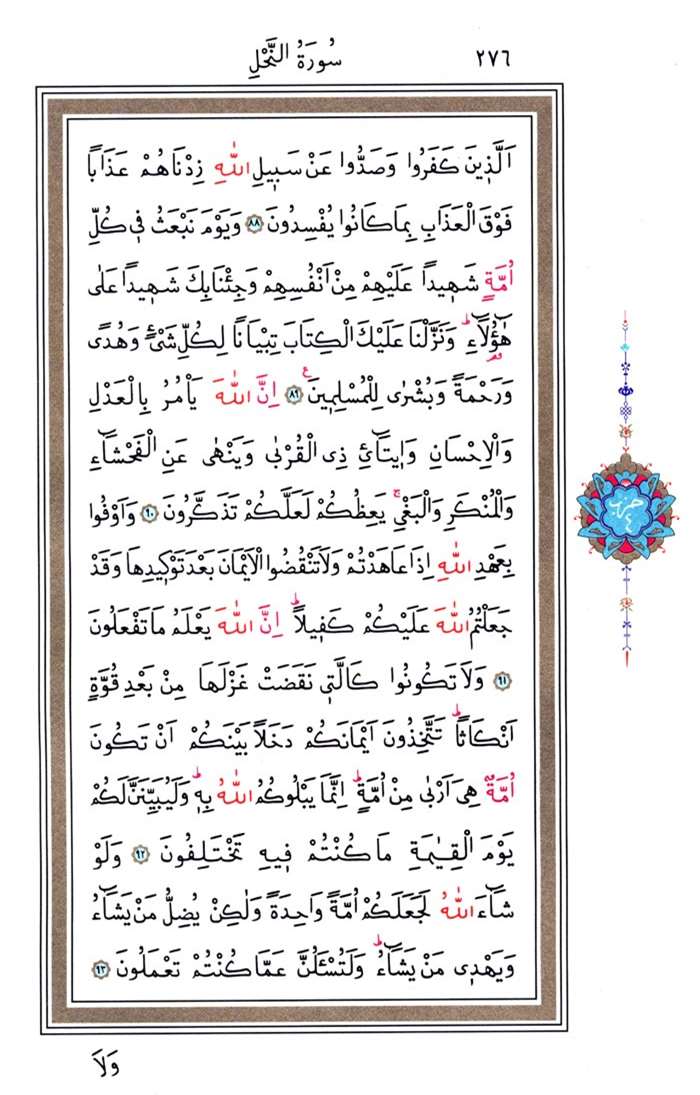 سُورَةُ النَّحْلِ ٢٧٦
اَلَّذ۪ينَ كَفَرُوا وَصَدُّوا عَنْ سَب۪يلِ اللّٰهِ زِدْنَاهُمْ عَذَاباً
فَوْقَ الْعَذَابِ بِمَا كَانُوا يُفْسِدُونَ ٨٨ وَيَوْمَ نَبْعَثُ ف۪ي كُلِّ
اُمَّةٍ شَه۪يداً عَلَيْهِمْ مِنْ اَنْفُسِهِمْ وَجِئْنَا بِكَ شَه۪يداً عَلٰى
هٰٓؤُ۬لَٓاءِۜ وَنَزَّلْنَا عَلَيْكَ الْكِتَابَ تِبْيَاناً لِكُلِّ شَيْءٍ وَهُدًى
وَرَحْمَةً وَبُشْرٰى لِلْمُسْلِم۪ينَ۟ ٨٩ اِنَّ اللّٰهَ يَأْمُرُ بِالْعَدْلِ
وَالْاِحْسَانِ وَا۪يتَٓائِ ذِي الْقُرْبٰى وَيَنْهٰى عَنِ الْفَحْشَٓاءِ
وَالْمُنْكَرِ وَالْبَغْيِۚ يَعِظُكُمْ لَعَلَّكُمْ تَذَكَّرُونَ ٩٠ وَاَوْفُوا
بِعَهْدِ اللّٰهِ اِذَا عَاهَدْتُمْ وَلَا تَنْقُضُوا الْاَيْمَانَ بَعْدَ تَوْك۪يدِهَا وَقَدْ
جَعَلْتُمُ اللّٰهَ عَلَيْكُمْ كَف۪يلاًۜ اِنَّ اللّٰهَ يَعْلَمُ مَا تَفْعَلُونَ
٩١ وَلَا تَكُونُوا كَالَّت۪ي نَقَضَتْ غَزْلَهَا مِنْ بَعْدِ قُوَّةٍ
اَنْكَاثاًۜ تَتَّخِذُونَ اَيْمَانَكُمْ دَخَلاً بَيْنَكُمْ اَنْ تَكُونَ
اُمَّةٌ هِيَ اَرْبٰى مِنْ اُمَّةٍۜ اِنَّمَا يَبْلُوكُمُ اللّٰهُ بِه۪ۜ وَلَيُبَيِّنَنَّ لَكُمْ
يَوْمَ الْقِيٰمَةِ مَا كُنْتُمْ ف۪يهِ تَخْتَلِفُونَ ٩٢ وَلَوْ
شَٓاءَ اللّٰهُ لَجَعَلَكُمْ اُمَّةً وَاحِدَةً وَلٰكِنْ يُضِلُّ مَنْ يَشَٓاءُ
وَيَهْد۪ي مَنْ يَشَٓاءُۜ وَلَتُسْـَٔلُنَّ عَمَّا كُنْتُمْ تَعْمَلُونَ ٩٣
وَلَا
حزب
٤